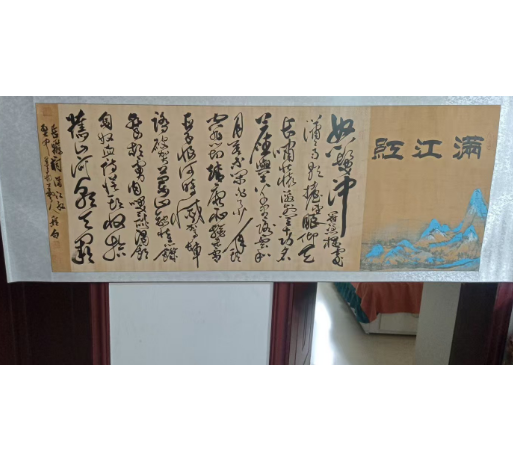 滿江紅
怒髮衝冠憑欄處
瀟瀟雨歇擡望眼仰天
長嘯壯懷激烈三十功名
塵與土八千里路雲和
月莫等閒白了少年頭
空悲切靖康恥猶未雪
臣子恨何時滅駕長車
踏破賀蘭山缺壯志飢餐
胡虜肉笑談渴飲
匈奴血待從頭收拾
舊山河朝天闕
岳飛詞滿江紅